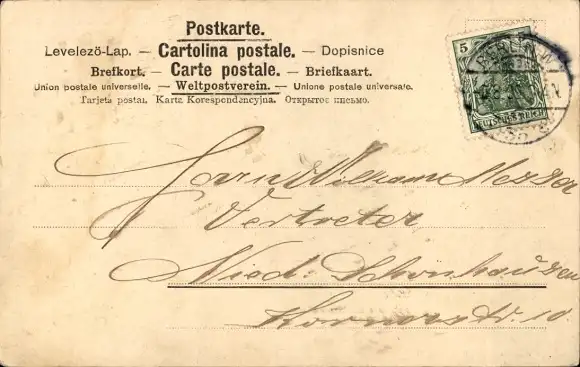 Postkarte.
Levelező-Lap. — Cartolina postale. — Dopisnice
Brefkort. — Carte postale. — Briefkaart.
Union postale universelle. — Weltpostverein. — Unione postale universale.
Tarjeta postal. Karta Korespondencyjna. Открытое письмо.
5
DEUTSCHES REICH
BERLIN N.
Herrn William Mezger
Vertreter
Nied: Schönhausen
Kornerstr. 10.